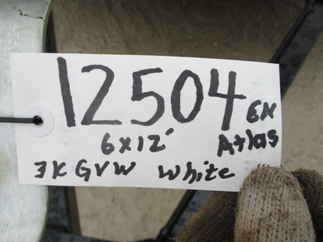 12504 GN
6x12' Atlas
3K GVW White